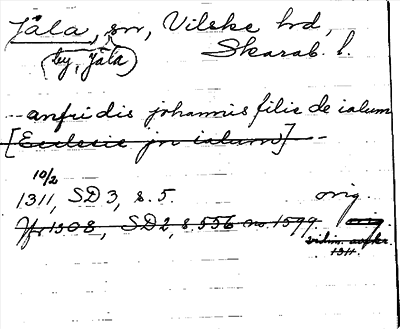 Jäla, sn, Vilske hd,
(by, Jäla) Skarab. l.
-- anfridis johannis filie de ialum
[Ecclesie jn ialum] --
10/2
1311, SD 3, s. 5. orig.
Jfr 1308, SD 2, s. 556 no. 1599. orig.
vidim. avskr.
1311.